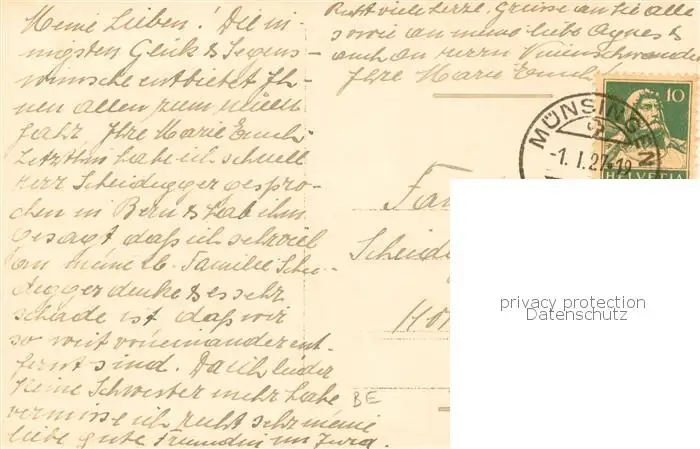 Meine Lieben! Die in-
nigsten Glück & Segens-
wünsche entbietet Ih-
nen allen zum neuen
Jahr Ihre Marie
Letzthin habe ich schnell
Herr Scheidegger gespro-
chen in Bern & hab ihm
gesagt daß ich sehr viel
an meine lb. Familie Schei-
degger denke & es sehr
schade ist daß wir
so weit voneinander ent-
fernt sind. Da ich leider
keine Schwester mehr habe
vermisse ich recht sehr meine
liebe gute Freundin im Jura.
Recht viele herzl. Grüsse an Sie alle
sowie an meine liebe Agnes &
auch an Herrn
Ihre Marie
MÜNSINGEN
-1. I. 27-19
10
HELVETIA
Fam
Scheide
BE
privacy protection
Datenschutz